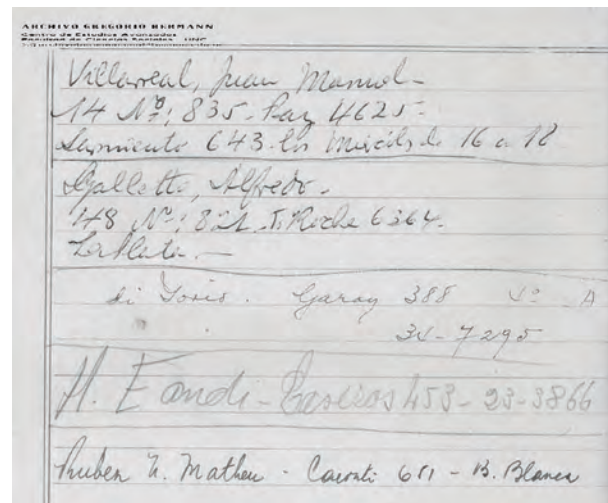 ARCHIVO GREGORIO BERMANN
Centro de Estudios Avanzados
Facultad de Ciencias Sociales - UNC
Villarreal, Juan Manuel -
14 Nº: 835 - Paz 4625 -
Sarmiento 643 - los miércoles de 16 a 18
Galletti, Alfredo -
48 Nº: 821 - T. Roche 6364 -
La Plata. -
di Garay 388 4º A
34-7295
H. - Caseros 453 - 23-3866
Ruben N. Matheu - 611 - B. Blanca